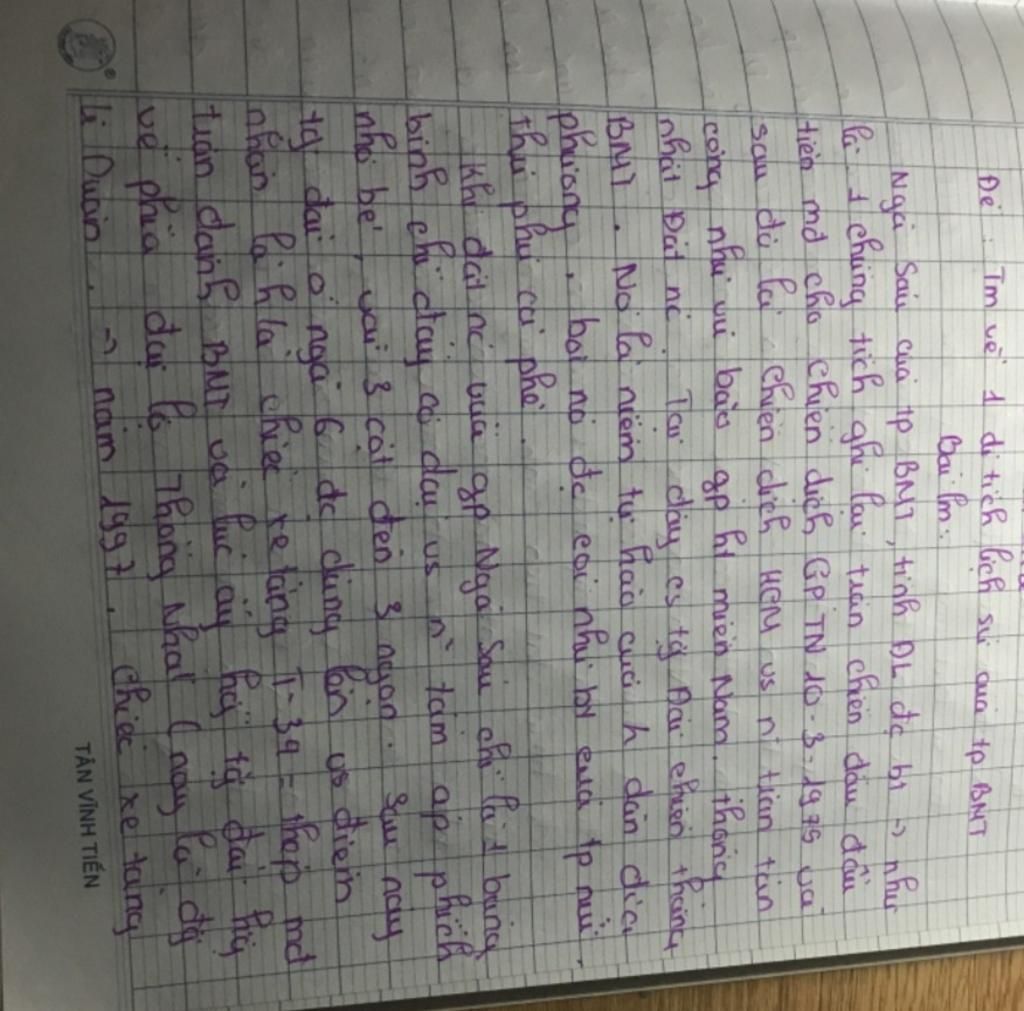 Đề: Tm về 1 di tích lịch sử của tp BMT
Bài lm:
Ngã Sáu của tp BMT, tỉnh ĐL đc bt → như
là 1 chứng tích ghi lại trận chiến đấu đầu
tiên mđ cho chiến dịch GP TN 10-3-1975 và
sau đó là chiến dịch HCM vs n~ trận tấn
công như vũ bão gp ht miền Nam, thống
nhất Đất nc. Tại đây cs tg Đài chiến thắng
BMT. Nó là niềm tự hào của h dân địa
phương, bởi nó đc coi như bt của tp núi
thủ phủ cà phê.
Khi đất nc vừa gp Ngã Sáu chỉ là 1 bùng
binh chỉ đây có dại vs n~ tấm áp phích
nhỏ bé, vài 3 cột đèn 3 ngọn. Sau này
tg đài ở ngã 6 đc dựng lên vs điểm
nhấn là h la chiếc xe tăng T-34 = thép mđ
trận đánh BMT và lúc ấy hg tg đài hg
về phía đại lộ Thống Nhất (nay là đg
Lê Duẩn. → năm 1997, chiếc xe tăng
TÂN VĨNH TIẾN